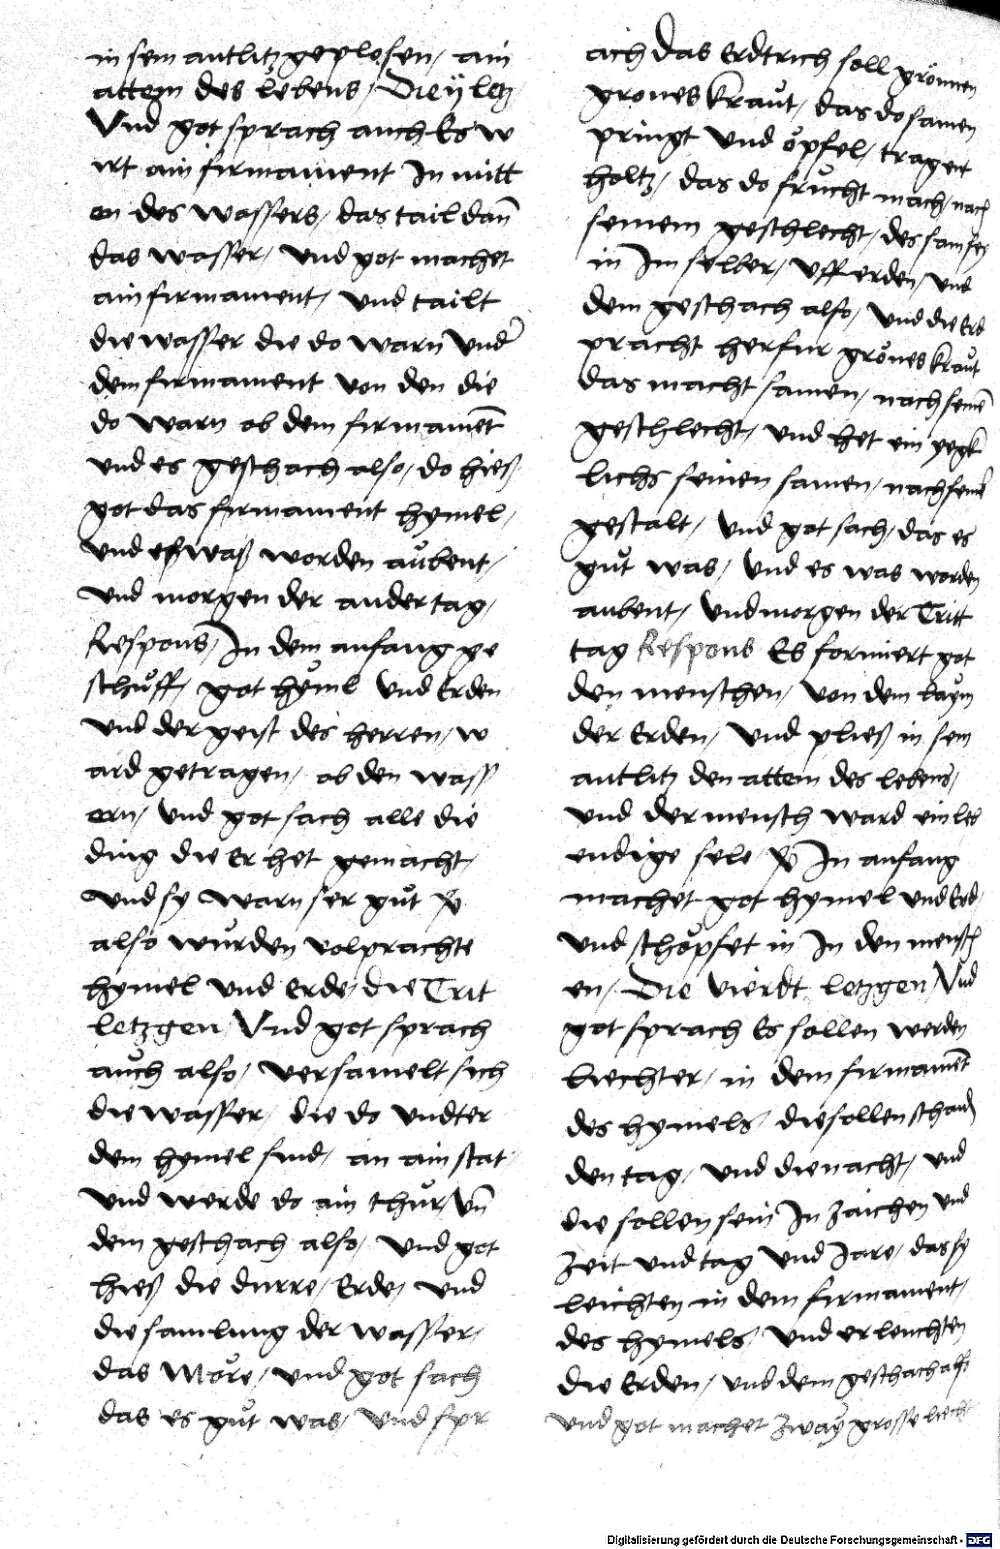 in sein antlitz geplosen, ain
attem des lebens, Die ij letz
Vnd got sprach auch Es w
irt ain firmament In mitt
en des wassers, das tail dañ
das wasser, vnd got machet
ain firmament, vnd tailt
die wasser die do warn vnder
dem firmament von den die
do warn ob dem firmamēt
vnd es geschach also, do hies
got das firmament hymel,
vnd es waß worden aůbent,
vnd morgen der ander tag,
Respons, In dem anfang ge
schůff, got hyml vnd Erden
vnd der geist des herren, w
ard getragen, ob den wass
ern, vnd got sach alle die
ding die Er het gemacht,
vnd sy warn ser gůt
also wůrden volprachte
hymel vnd erde, die Trit
letzgen, Vnd got sprach
aůch also, versamelt sich
die wasser, die do vndter
dem hymel sind, an ain stat
vnd werde do ain thůr, vñ
dem geschach also, vnd got
hieß die dürre, Erde, vnd
die samlung der wasser,
das Möre, vnd got sach
das es gůt was, vnd spr
ach das Erdtrich soll grönnen
grones kraůt, das do samen
pringt vnd öpfel, tragent
holtz, das do frůcht mach, nach
seinem geschlecht, des sam sey
in Im selber, vff erden, vnd
dem geschach also, vnd die Erd
pracht herfur grönes kraůt
das macht samen, nach seinē
geschlecht, vnd het ein yegk
lichs seinen samen, nach seinē
gestalt, vnd got sach, das es
gůt was, vnd es was worden
aubent, vnd morgen der Tritt
tag Respons Es formiert got
den menschen, von dem laým
der Erden, vnd pließ in sein
antlitz den attem des lebens,
vnd der mensch ward ein leb
endige sele In anfang
machet got hymel vnd Erd,
vnd schöpfet in In den mensch
en, Die vierdt letzgen, Vnd
got sprach Es sollen werden
liechter, in dem firmamēt
des hymels, die sollen schaid
den tag, vnd die nacht, vnd
die sollen sein In zaichen vnd
zeit vnd tag vnd Jare, das sy
leichten in dem firmament,
des hymels, vnd erleuchten
die Erden, vnd dem geschach also
vnd got machet zwaý grosse liecht
Digitalisierung gefördert durch die Deutsche Forschungsgemeinschaft - DFG